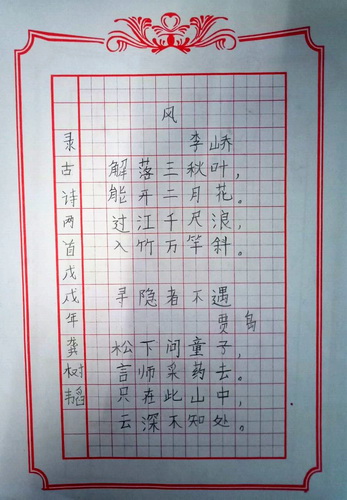 风
李峤
解落三秋叶，
能开二月花。
过江千尺浪，
入竹万竿斜。
寻隐者不遇
贾岛
松下问童子，
言师采药去。
只在此山中，
云深不知处。
录古诗两首戊戌年龚树韬